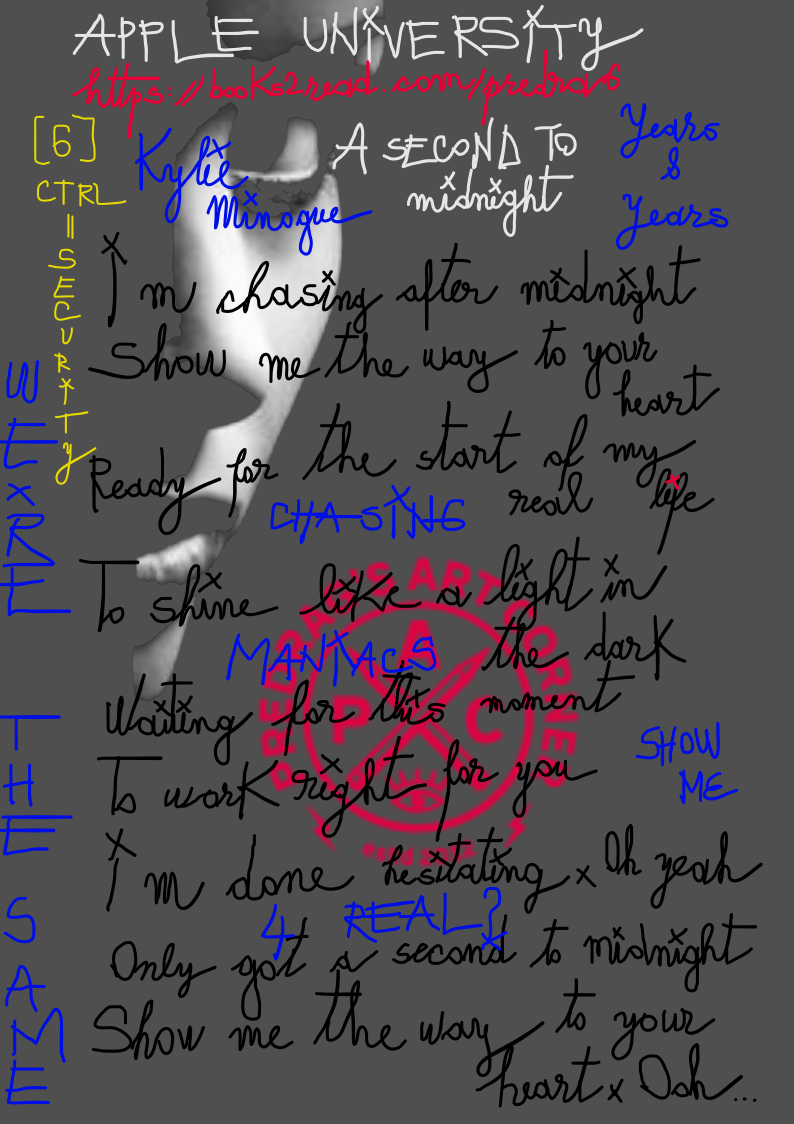 APPLE UNIVERSITY
https://books2read.com/predrav6
[6]
CTRL
=
SECURITY
Kylie
Minogue
A SECOND TO
midnight
Years
&
Years
I'm chasing after midnight
Show me the way to your
heart
Ready for the start of my
real life
CHASING
To shine like a light in
the dark
MANIACS
Waiting for this moment
To work right for you
SHOW
ME
I'm done hesitating x Oh yeah
4 REAL?
Only got a second to midnight
Show me the way to your
heart x Ooh...
WE'RE THE SAME
PREDRA'S ART CORNER
P A C